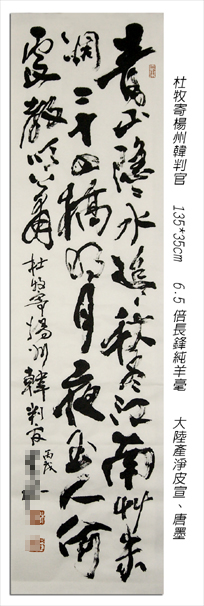 杜牧寄楊州韓判官 135*35cm 6.5 倍長鋒純羊毫 大陸產淨皮宣、唐墨
青山隱々水迢々秋盡江南艸未
凋二十四橋明月夜玉人何
處教吹簫 杜牧寄揚州韓判官 丙戌